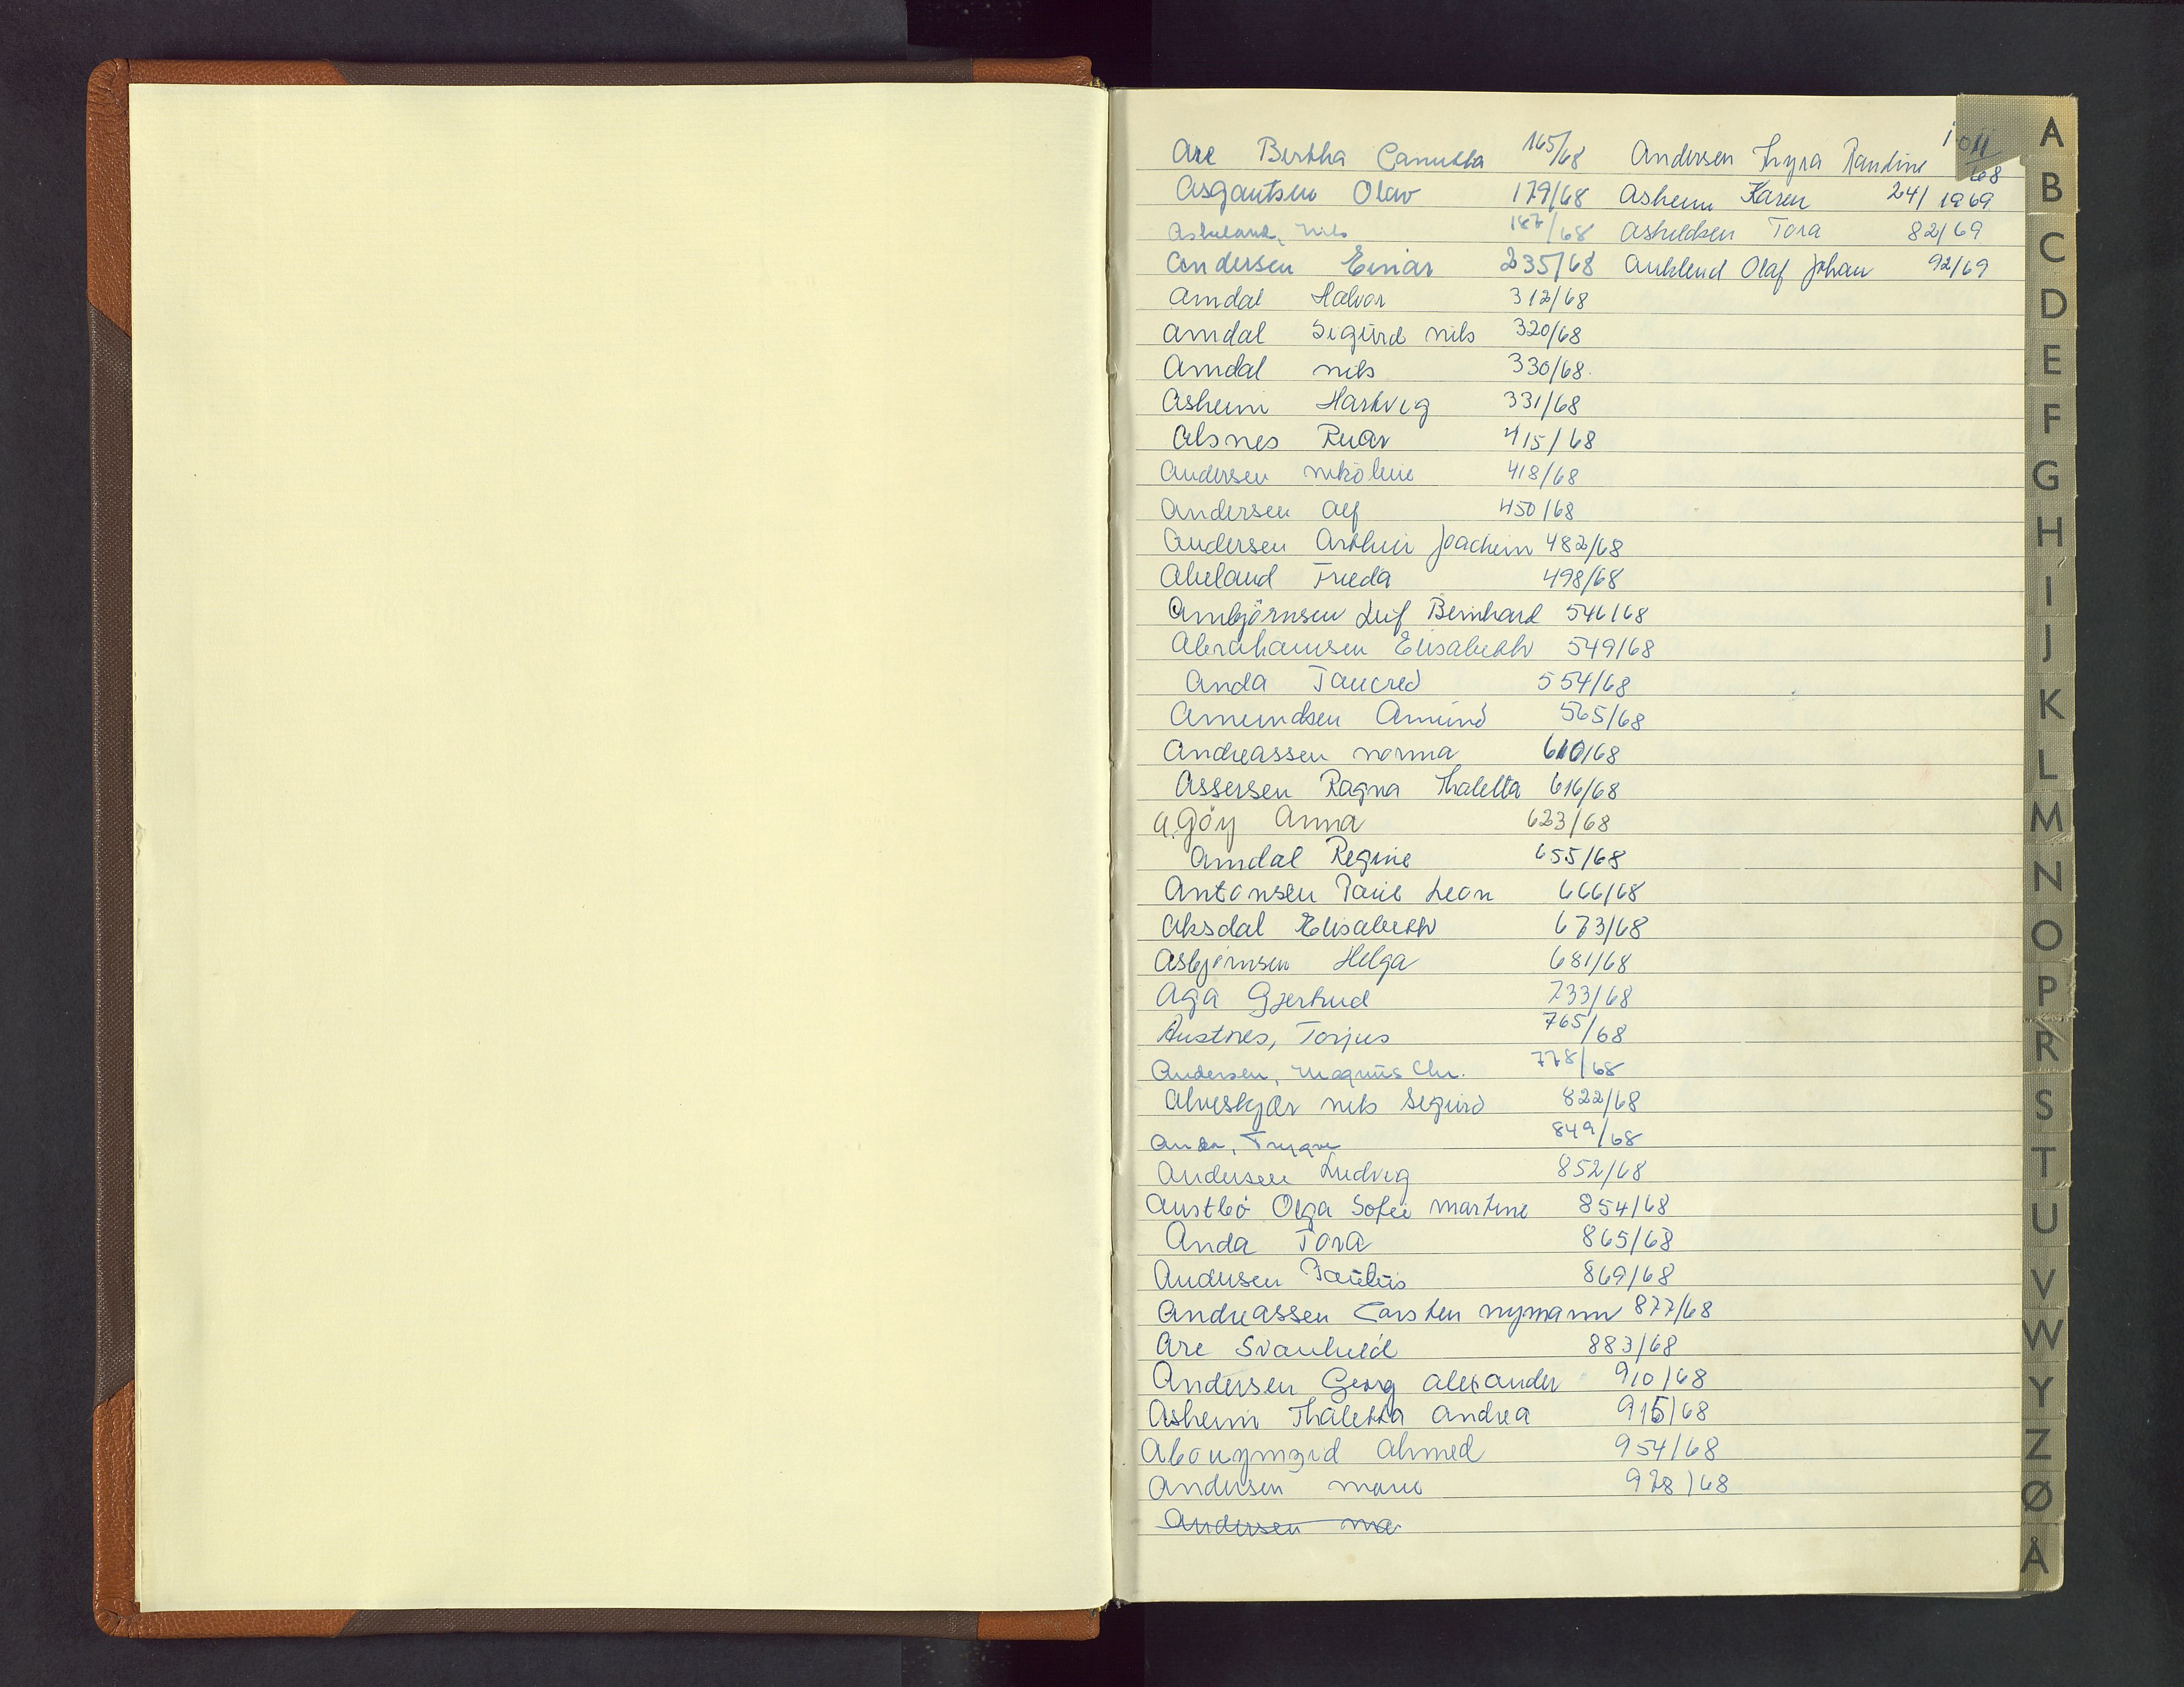 Are Bertha Canutta 165/68
Asgautsen Olav 179/68
Askeland, Nils 187/68
Andersen Einar 235/68
Amdal Halvor 312/68
Amdal Sigurd Nils 320/68
Amdal Nils 330/68.
Asheim Hartvig 331/68
Alsnes Roar 415/68
Andersen Nikoline 418/68
Andersen Alf 450/68
Andersen Arthur Joachim 482/68
Akeland Frieda 498/68
Arnbjörnsen Leif Bernhard 546/68
Abrahamsen Elisabeth 549/68
Anda Tancred 554/68
Amundsen Amund 565/68
Andreassen Norma 610/68
Assersen Ragna Thaletta 616/68
A.Göy Anna 623/68
Amdal Regine 655/68
Antonsen Paul Leon 666/68
Aksdal Elisabeth 673/68
Asbjørnsen Helga 681/68
Aga Gjertrud 733/68
Austnes, Torjus 765/68
Andersen, Magnus Chr. 778/68
Alveskjær Nils Sigurd 822/68
Anda, Trygve 849/68
Andersen Ludvig 852/68
Austbö Olga Sofie Martine 854/68
Anda Tora 865/68
Andersen Paulus 869/68
Andreassen Carsten Nymann 877/68
Are Svanhild 883/68
Andersen Georg Alexander 910/68
Asheim Thaletta Andrea 915/68
Ahmed 954/68
Andersen Marie 978/68
Andersen Ma
Andersen Thyra Randine 1011/68
Asheim Karen 24/1969
Askildsen Tora 82/69
Auklend Olaf Johan 92/69
A
B
C
D
E
F
G
H
I
J
K
L
M
N
O
P
R
S
T
U
V
W
Y
Z
Ø
Å